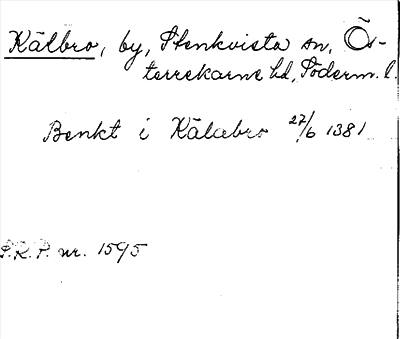 Kälbro, by, Stenkvista sn, Ös-
terrekarne hd, Söderm. l.
Benkt i Kälabro 27/6 1381
S.R.P. nr. 1595